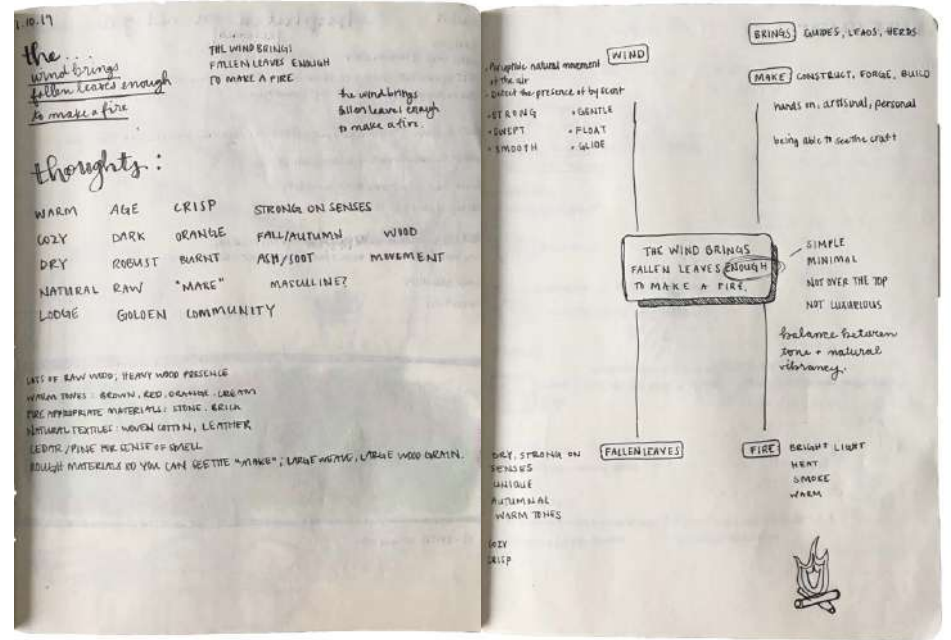 1.10.17
the...
wind brings
fallen leaves enough
to make a fire
THE WIND BRINGS
FALLEN LEAVES ENOUGH
TO MAKE A FIRE
the wind brings
fallen leaves enough
to make a fire.
thoughts:
WARM AGE CRISP STRONG ON SENSES
COZY DARK ORANGE FALL/AUTUMN WOOD
DRY ROBUST BURNT ASH/SOOT MOVEMENT
NATURAL RAW "MAKE" MASCULINE?
LODGE GOLDEN COMMUNITY
LOTS OF RAW WOOD, HEAVY WOOD PRESENCE
WARM TONES: BROWN, RED, ORANGE, CREAM
FIRE APPROPRIATE MATERIALS: STONE, BRICK
NATURAL TEXTILES: WOVEN COTTON, LEATHER
CEDAR/PINE FOR SENSE OF SMELL
ROUGH MATERIALS SO YOU CAN SEE THE "MAKE"; LARGE WEAVE, LARGE WOOD GRAIN.
WIND
natural movement
of the air
Detect the presence of by scent
STRONG • GENTLE
• SWEPT • FLOAT
• SMOOTH • GLIDE
BRINGS GUIDES, LEADS, HERDS
MAKE CONSTRUCT, FORGE, BUILD
hands on, artisanal, personal
being able to see the craft
THE WIND BRINGS
FALLEN LEAVES ENOUGH
TO MAKE A FIRE.
SIMPLE
MINIMAL
NOT OVER THE TOP
NOT LUXURIOUS
balance between
tone + natural
vibrancy.
FALLEN LEAVES
DRY, STRONG ON
SENSES
UNIQUE
AUTUMNAL
WARM TONES
COZY
CRISP
FIRE BRIGHT LIGHT
HEAT
SMOKE
WARM